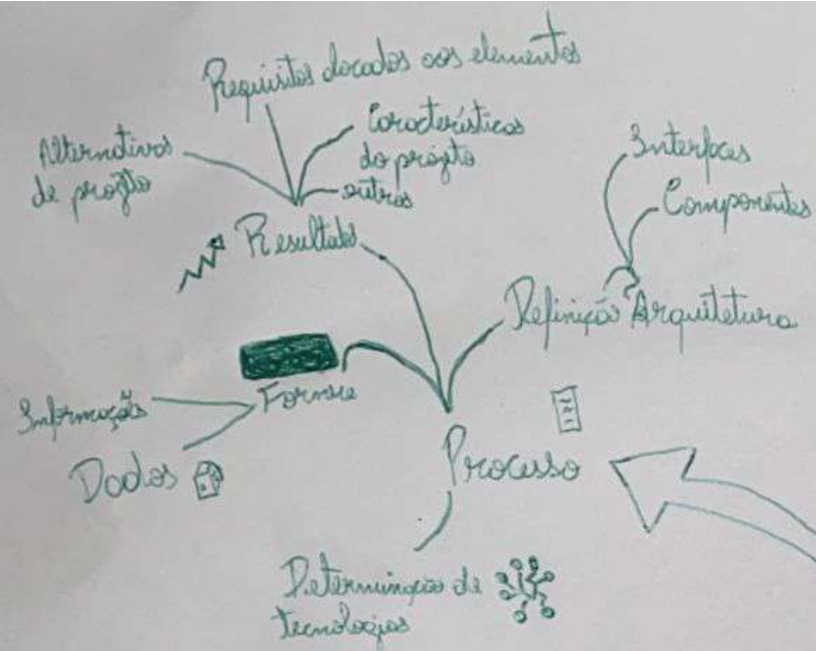 Requisitos alocados aos elementos
Alternativas
de projeto
Características
do projeto
outros
Resultados
Interfaces
Componentes
Definição Arquitetura
Fornece
Informações
Dados
Processo
Determinação de
tecnologias